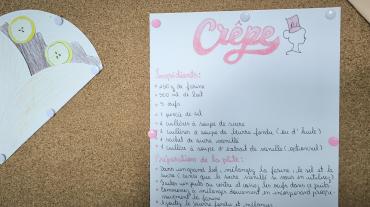 Crêpe
Ingrédients:
250 g de farine
500 mL de lait
3 œufs
1 pincée de sel
2 cuillères à soupe de sucre
2 cuillères à soupe de beurre fondu (ou d'huile)
1 sachet de sucre vanillé
1 cuillère à soupe d'extrait de vanille (optionnel)
Préparation de la pâte:
Dans un grand bol, mélangez la farine, le sel et le
sucre (ainsi que le sucre vanillé si vous en utilisez)
Faites un puits au centre et cassez les œufs dans le puits
Commencez à mélanger doucement en incorporant progres-
sivement la farine
Ajoutez le beurre fondu et mélangez